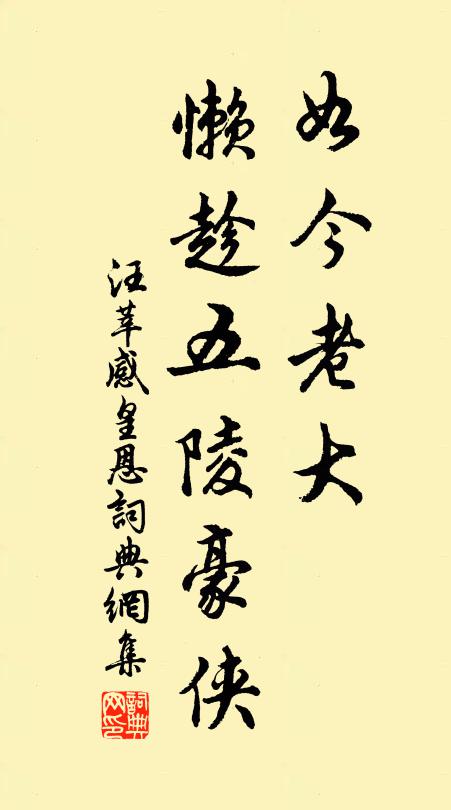 如今老大
懒趁五陵豪侠
汪莘感皇恩詞典網集
詞典
网印